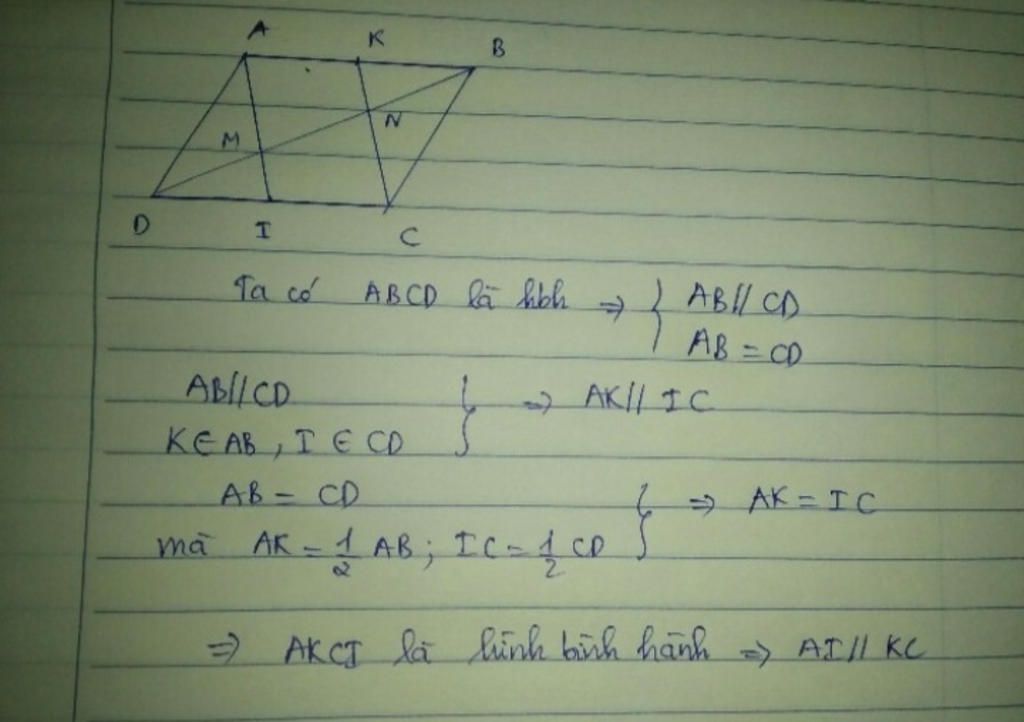 A K B
M N
D I C
Ta có ABCD là hbh ⇒ { AB // CD
AB = CD
AB // CD } ⇒ AK // IC
K ∈ AB, I ∈ CD
AB = CD } ⇒ AK = IC
mà AK = 1/2 AB; IC = 1/2 CD
⇒ AKCI là hình bình hành ⇒ AI // KC